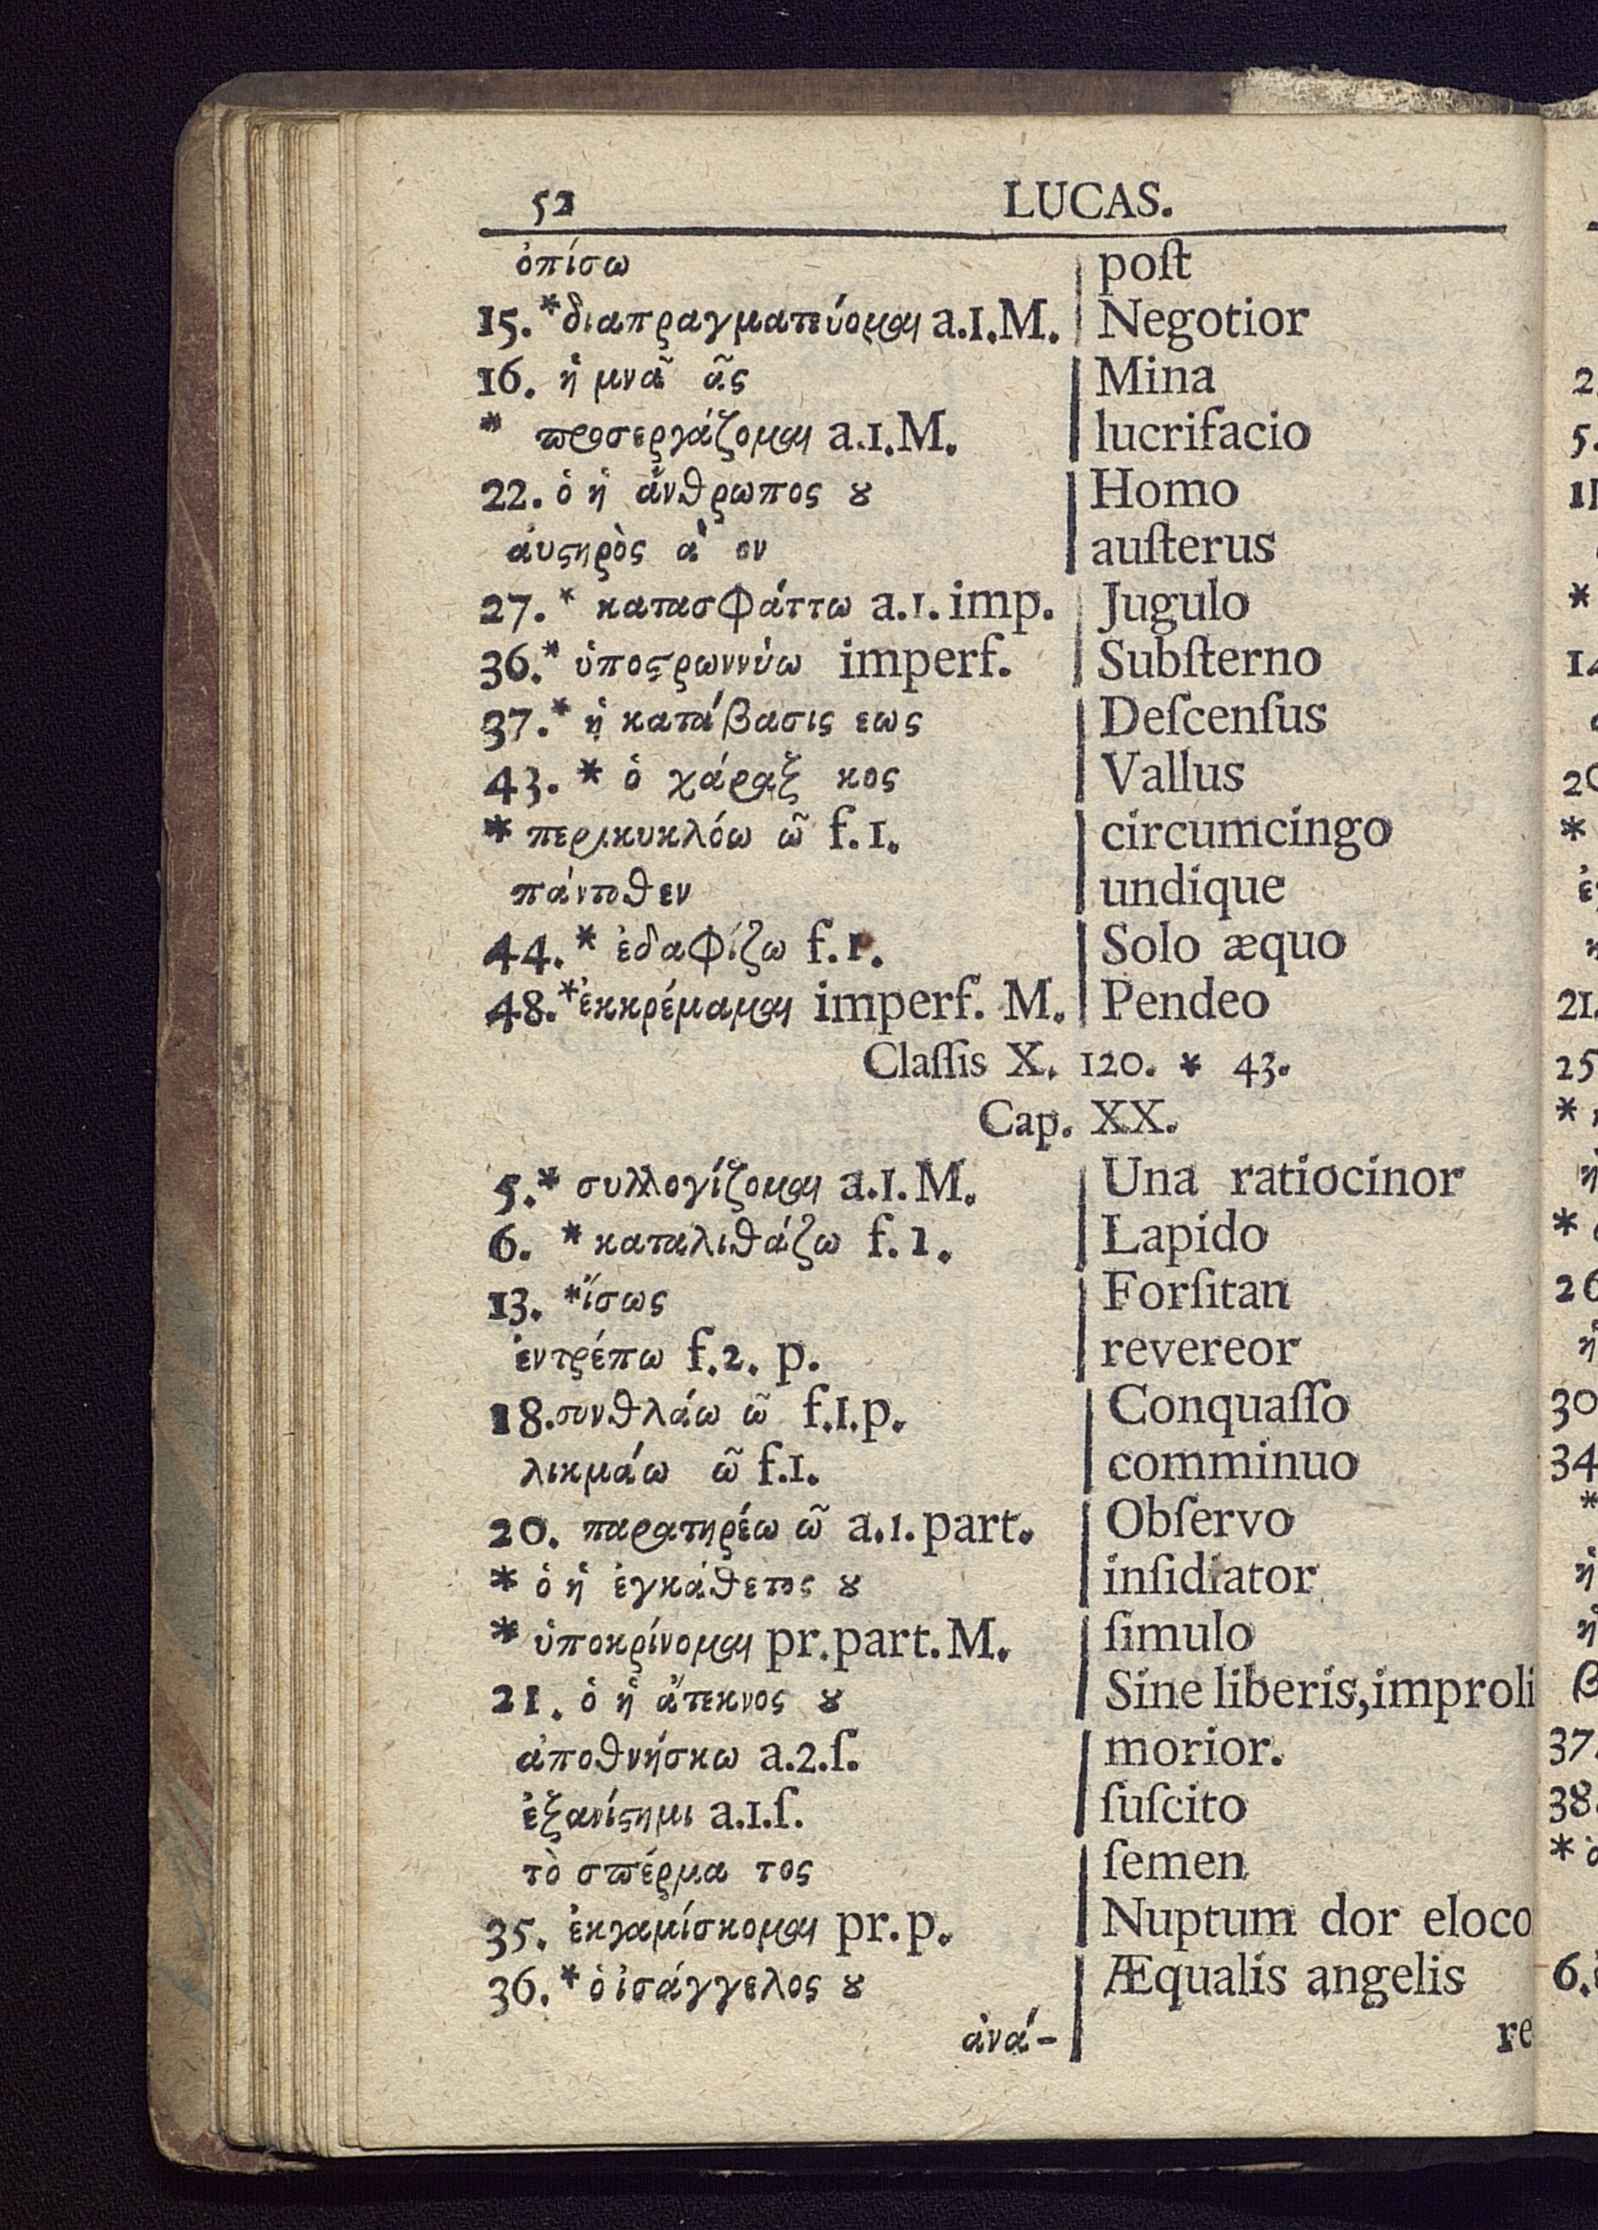 52 LUCAS.
ὀπίσω | poſt
15. *διαπραγματεύομαι a.1.M. | Negotior
16. ἡ μνᾶ ᾶς | Mina
* προσεργάζομαι a.1.M. | lucrifacio
22. ὁ ἡ ἄνθρωπος ȣ | Homo
ἀυϛηρὸς ὰ ον | auſterus
27. * κατασφάττω a.1. imp. | Jugulo
36.* ὑποϛρωννύω imperf. | Subſterno
37.* ἡ κατάβασις εως | Deſcenſus
43. * ὁ χάραξ κος | Vallus
* περικυκλόω ῶ f.1. | circumcingo
πάντοθεν | undique
44.* ἐδαφίζω f.1. | Solo æquo
48.*ἐκκρέμαμαι imperf. M. | Pendeo
Claſſis X. 120. * 43.
Cap. XX.
5.* συλλογίζομαι a.1.M. | Una ratiocinor
6. * καταλιθάζω f.1. | Lapido
13. *ἴσως | Forſitan
ἐντρέπω f.2. p. | revereor
18.συνθλάω ῶ f.1.p. | Conquaſſo
λικμάω ῶ f.1. | comminuo
20. παρατηρέω ῶ a.1.part. | Obſervo
* ὁ ἡ ἐγκάθετος ȣ | inſidiator
* ὑποκρίνομαι pr.part.M. | ſimulo
21. ὁ ἡ ἄτεκνος ȣ | Sine liberis,improli
ἀποθνήσκω a.2.ſ. | morior.
ἐξανίϛημι a.1.ſ. | ſuſcito
τὸ σπέρμα τος | ſemen
35. ἐκγαμίσκομαι pr.p. | Nuptum dor eloco
36.* ὁ ἰσάγγελος ȣ | Æqualis angelis
ἀνά- | re